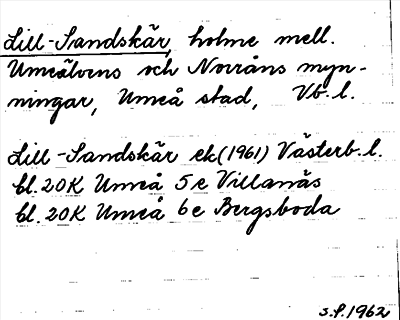 Lill-Sandskär, holme mell.
Umeälvens och Norråns myn-
ningar, Umeå stad, Vb.l.
Lill-Sandskär ek(1961) Västerb.l.
bl.20K Umeå 5e Villanäs
bl.20K Umeå 6e Bergsboda
s.f.1962